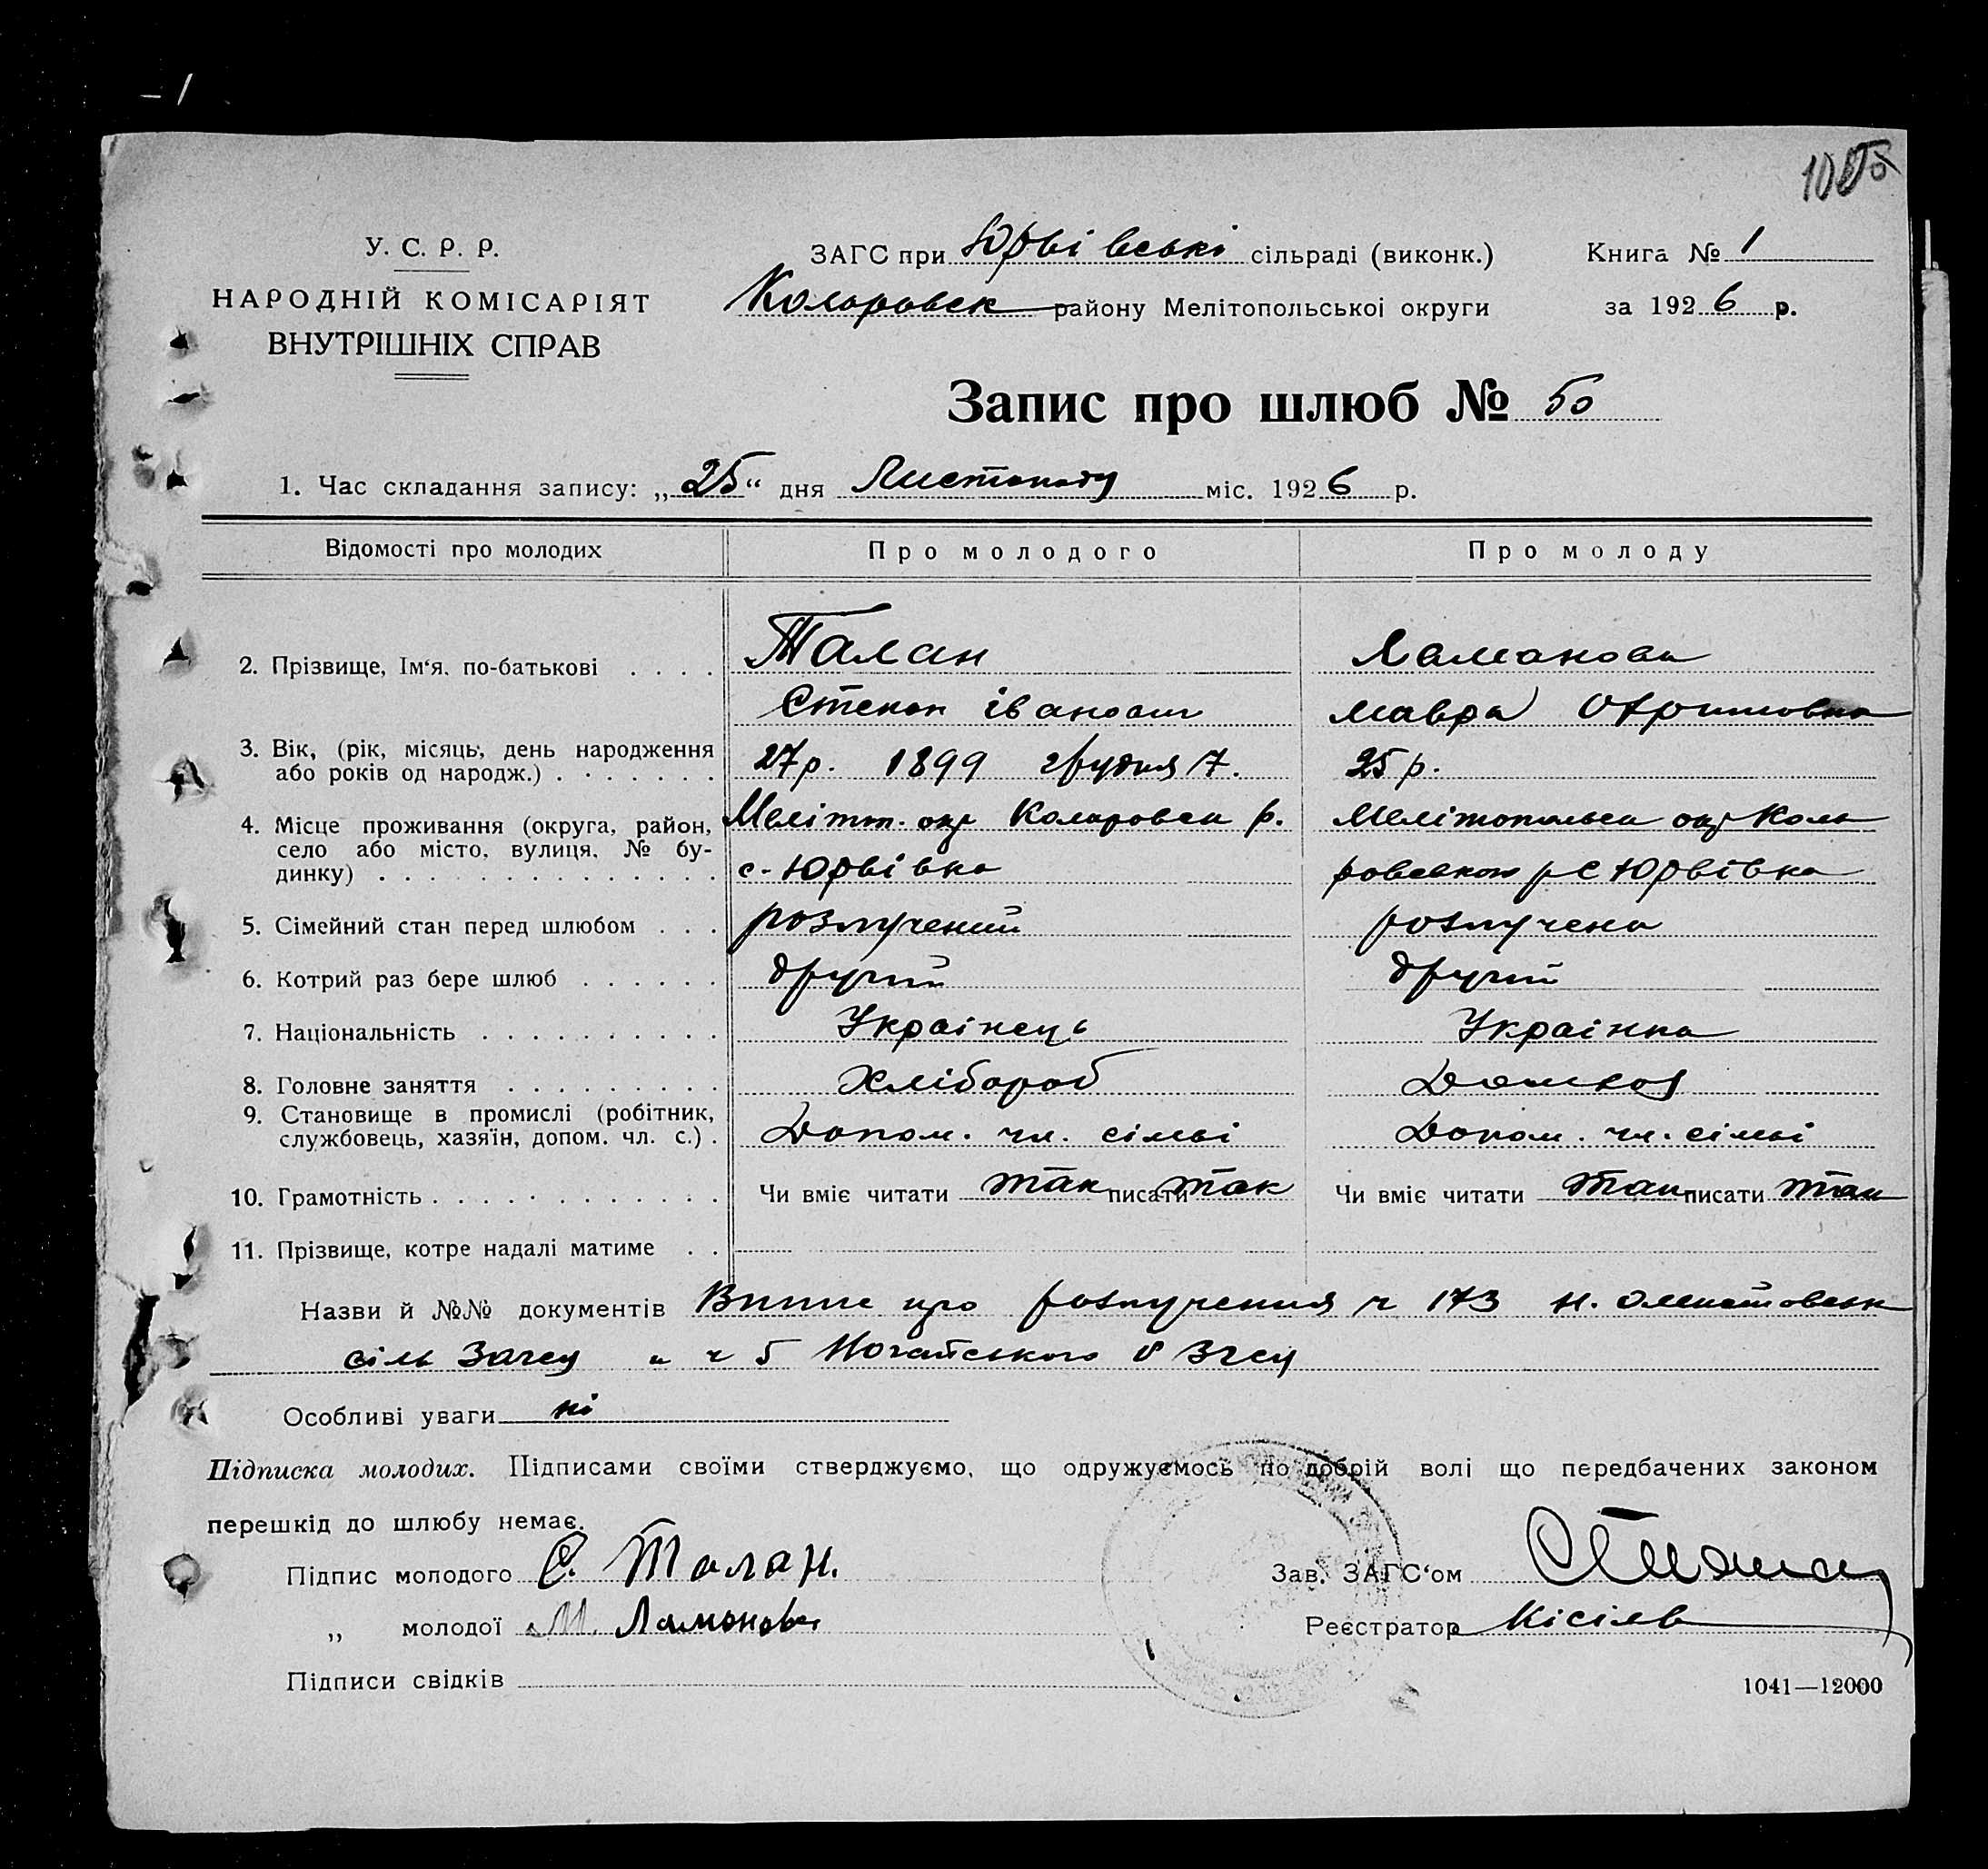 У. С. Р. Р.
НАРОДНІЙ КОМІСАРІЯТ
ВНУТРІШНІХ СПРАВ
ЗАГС при Юрвівські сільраді (виконк.)
Коларовск району Мелітопольської округи
Книга № 1
за 1926 р.
Запис про шлюб № 50
1. Час складання запису: „25“ дня Листопаду міс. 1926 р.
Відомості про молодих Про молодого Про молоду
2. Прізвище, Ім‘я, по-батькові . . . . Талан Ламанова
Степан Іванович мавра
3. Вік, (рік, місяць, день народження 27р. 1899 грудня 7. 25 р.
або років од народж.) . . . . . . .
4. Місце проживання (округа, район, Меліт. окр Коларовск р. Мелітопольск окр Кола
село або місто, вулиця, № бу-
динку) . . . . . . . . . . . . . . с. Юрвівка ровського р с Юрвівка
5. Сімейний стан перед шлюбом . . . розлучений розлучена
6. Котрий раз бере шлюб . . . . . . другий другий
7. Національність . . . . . . . . . . Українець Українка
8. Головне заняття . . . . . . . . . Хлібороб
9. Становище в промислі (робітник,
службовець, хазяїн, допом. чл. с.) . Допом. чл. сімьї Допом. чл. сімьї
10. Грамотність . . . . . . . . . . . . Чи вміє читати так писати так Чи вміє читати так писати так
11. Прізвище, котре надалі матиме . .
Назви й №№ документів про розлучення ч 173
сіль Загсу " ч 5 Ногайського
Особливі уваги ні
Підписка молодих. Підписами своїми стверджуємо, що одружуємось по добрій волі що передбачених законом
перешкід до шлюбу немає.
Підпис молодого С. Талан. Зав. ЗАГС‘ом
„ молодої М. Ламанова Реєстратор Кісілв
Підписи свідків
1041—12000